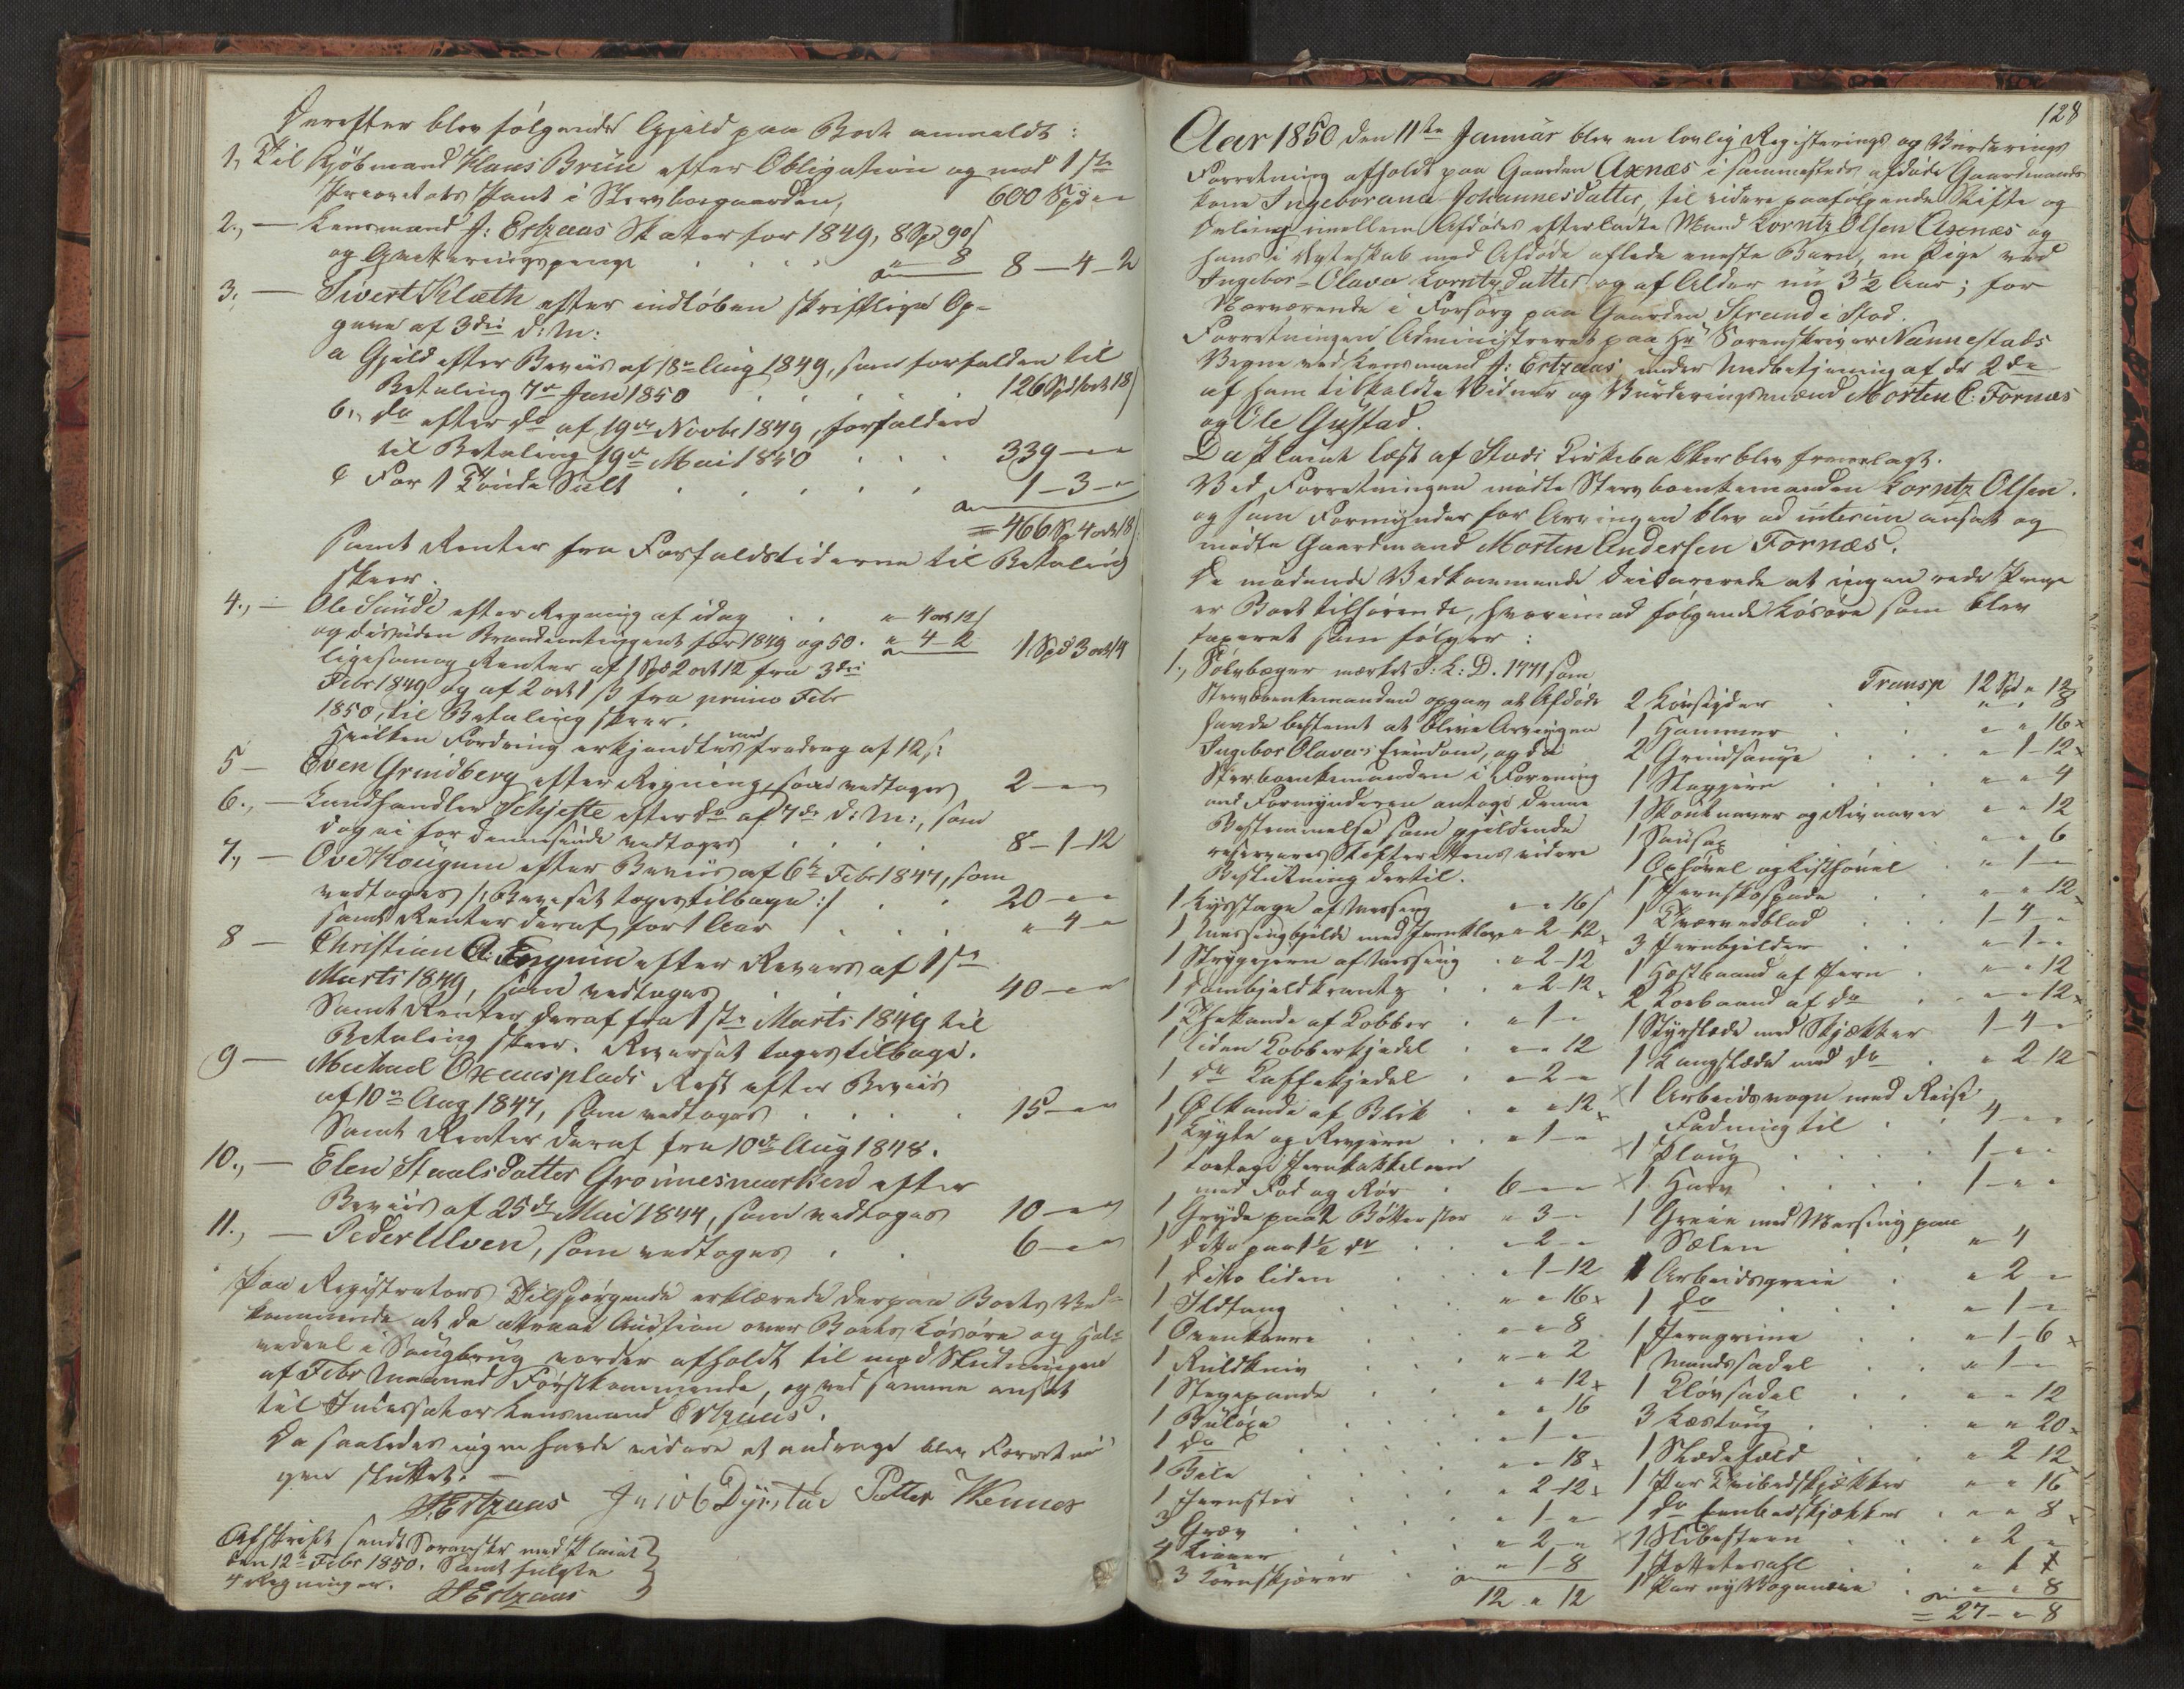 Derefter blev følgende Gjæld paa Boet anmeldt:
1, Til Kjøbmand Klaus Brüse efter Obligation og med 1ste
Prioritets Pant i Stervboegaarden, 600 Spd " "
2., — Lensmand J: Ertzaas Skatter for 1849, 8 Spd 90 s
og Qvitteringspenge . . . " 8 8 — 4 — 2
3; — Sivert Klæth efter indløben skriftlige Op-
gave af 3die d: M:
a Gjæld efter Beviis af 18de Aug 1849, som forfalden til
Betaling 7de Jan 1850 . . . . 126 Spd 1 ort 18 s
b, do efter do af 19de Novbr 1849, forfalden
til Betaling 19de Mai 1850 . . . 339 — " "
c For 1 Tønde Salt . . . . . 1 — 3 — "
= 466 Sp 4 ort 18 s
samt Renter fra Forfaldstiderne til Betaling
skeer.
4., — Ole Sunde efter Regning af idag . . " 4 ort 12 s
og desuden Brandcontingent for 1849 og 50. " 4 — 2 1 Spd 3 ort 14
ligesom og Renter af 1 Spd 2 ort 12 fra 3die
Febr 1849 og af 2 ort 1 s fra primo Febr
1850, til Betaling skeer.
Hvilken Fordring erkjendtes med fradrag af 12 s:
5 — Even Grindberg efter Regning, som vedtoges 2 — " "
6., — Landhandler Schjefte efter do af 7de d: M:, som
dog ei for dennesinde vedtoges . . . . 8 — 1 — 12
7., — Ove Hougum efter Beviis af 6te Febr 1847, som
vedtoges /: Beviset toges tilbage :/ . . 20 — " "
samt Renter deraf for 1 Aar . . . " 4 — "
8 — Christian A: Fergum efter Revers af 1ste
Marts 1849, som vedtoges . . . 40 — " "
Samt Renter deraf fra 1ste Marts 1849 til
Betaling skeer. Reverset toges tilbage.
9 — Michael Oxaasplads Rest efter Beviis
af 10de Aug 1847, som vedtoges . . . . 15 — " "
Samt Renter deraf fra 10de Aug 1848.
10., — Elen Staalsdatter Grønnesmarken efter
Beviis af 25de Mai 1844, som vedtoges 10 — " "
11., — Peder Ulven, som vedtoges . . 6 — " "
Paa Registrators Tilspørgende erklærede derpaa Boets Ved-
kommende at de attraae Auction over Boets Løsøre og Halv-
vedeel i Saugbrug vorder afholdt til mod Slutningen
af Febr Maaned Førstkommende, og ved samme ansat
til Incassator Lensmand Ertzaas.
Da saaledes ingen havde videre at andrage blev Forretnin-
gen sluttet. —
J: Ertzaas Jacob Dyrstad Petter Wennes
Afskrift sendt Sorenskr med Placat
den 12te Febr 1850. Samt fulgte
4 Regninger.
J Ertzaas
128
Aar 1850 den 11te Januar blev en lovlig Registerings og Vurderings
Forretning afholdt paa Gaarden Axnæs i sammesteds afdøde Gaardmands
kone Ingeborana Johannesdatter, til videre paafølgende Skifte og
Deling imellem Afdødes efterladte Mand Lorntz Olsen Axnæs og
hans i Ægteskab med Afdøde aflede eneste Barn, en Pige ved
Ingebor-Olava Lorntzdatter og af Alder nu 3½ Aar; for
Nærværende i Forsørg paa Gaarden Strand i Stod.
Forretningen Administreret paa Hr Sorenskriver Nannestads
Vegne ved Lensmand J: Ertzaas under Medbetjening af de 2de
af ham tilkaldte Vidner og Vurderingsmænd Morten C. Fornæs
og Ole Gustad.
Da Placat læst af Stods Kirkebakker blev fremlagt.
Ved Forretningen mødte Stervboenkemanden Lorntz Olsen.
og som Formynder for Arvingen blev ad interim ansat og
mødte Gaardmand Morten Andersen Fornæs.
De mødende Vedkommende declarerede at ingen rede Penge
er Boet tilhørende, hvorimod følgende Løsøre som blev
taxeret som følger:
1., Sølvbæger mærket I: L: D. 1771 som
Stervboenkemanden opgav at Afdøde
havde bestemt at blive Arvingen
Ingebor Olava's Eiendom, og da
Stervboenkemanden i Forening
med Formynderen antage denne
Bestemmelse som gjeldende
reserveres Skifterettens videre
Beslutning dertil.
1 Lysstage af Messing " " 16 s
1 Messingbjelde med Jernklave " 2 — 12
1 Strygejern af Messing . " 2 — 12
1 Dombjeldkrantz . . " 2 — 12
1 Thekande af Kobber . " 1 — "
1 liden Kobberkjedel . " " 12
1 do Kaffekjedel . " 2 — "
1 Ølkande af Blik . " " 12
1 Lygte og Rivjern . . " 1 — "
1 toetages Jernkakkelovn
med Fod og Rør . 6 — " "
1 Gryde paa 2 Bøtter stor " 3 — "
1 ditto paa 1½ do . . " 2 — "
1 ditto liden . . . " 1 — 12
1 Ildtang . . . " " 16
1 Ovnkrare . . . " " 8
1 Ruldkniv . . . " " 2
1 Stegepande . . . " " 12
1 Buløxe . . . " " 16
1 do . . . " 1 — "
1 Bile . . . " " 18
1 Jernstør . . . " 2 — 12
3 Græv . . . " 1 — "
4 Liaaer . . . " 2 — "
3 Kornskjærer . . " 1 — 8
12 " 12
Transp 12 Spd " 12 s
2 Kornsigder . . . " " 8
1 Hammer . . . " " 16
2 Grindsauge . . . " 1 — 12
1 Stagjern . . . " " 4
1 Skonknaver og Rivnaver " " 12
1 Sausax . . . " " 6
1 Oxhøvel og Listhøvel . " 1 — "
1 Jernskospade . . " " 12
1 Tværvedblad . . . 1 — 4 — "
3 Jernbjelder . . . " 1 — "
1 Hestbaand af Jern . " " 12
2 Koebaand af do . . " " 12
1 Styrslæde med Skjækker 1 — 4 — "
1 Langslæde med do . . " 2 — 12
1 Arbeidsvogn med Reise
Fadning til . . 4 — " "
1 Ploug . . . . 1 — " "
1 Harv . . . . 1 — " "
1 Greie med Messing paa
Sælen . . . " 4
1 Arbeidsgreie . . " 2 — "
1 do . . . . " 1 — "
1 Jerngrime . . " 1 — 6
1 Mandssadel . . " 1 — "
1 Kløvsadel . . . " " 12
3 Læstoug . . . " " 20
1 Slædefæld . . " 2 — 12
1 Par Tvibedskjækker " " 16
1 do Eenbedskjækker . " " 8
1 Slibesteen . . . " 2 —
1 Pottetraahl . . " 1
1 Par ny Vognmeier . . " " 8
= 27 — " 8